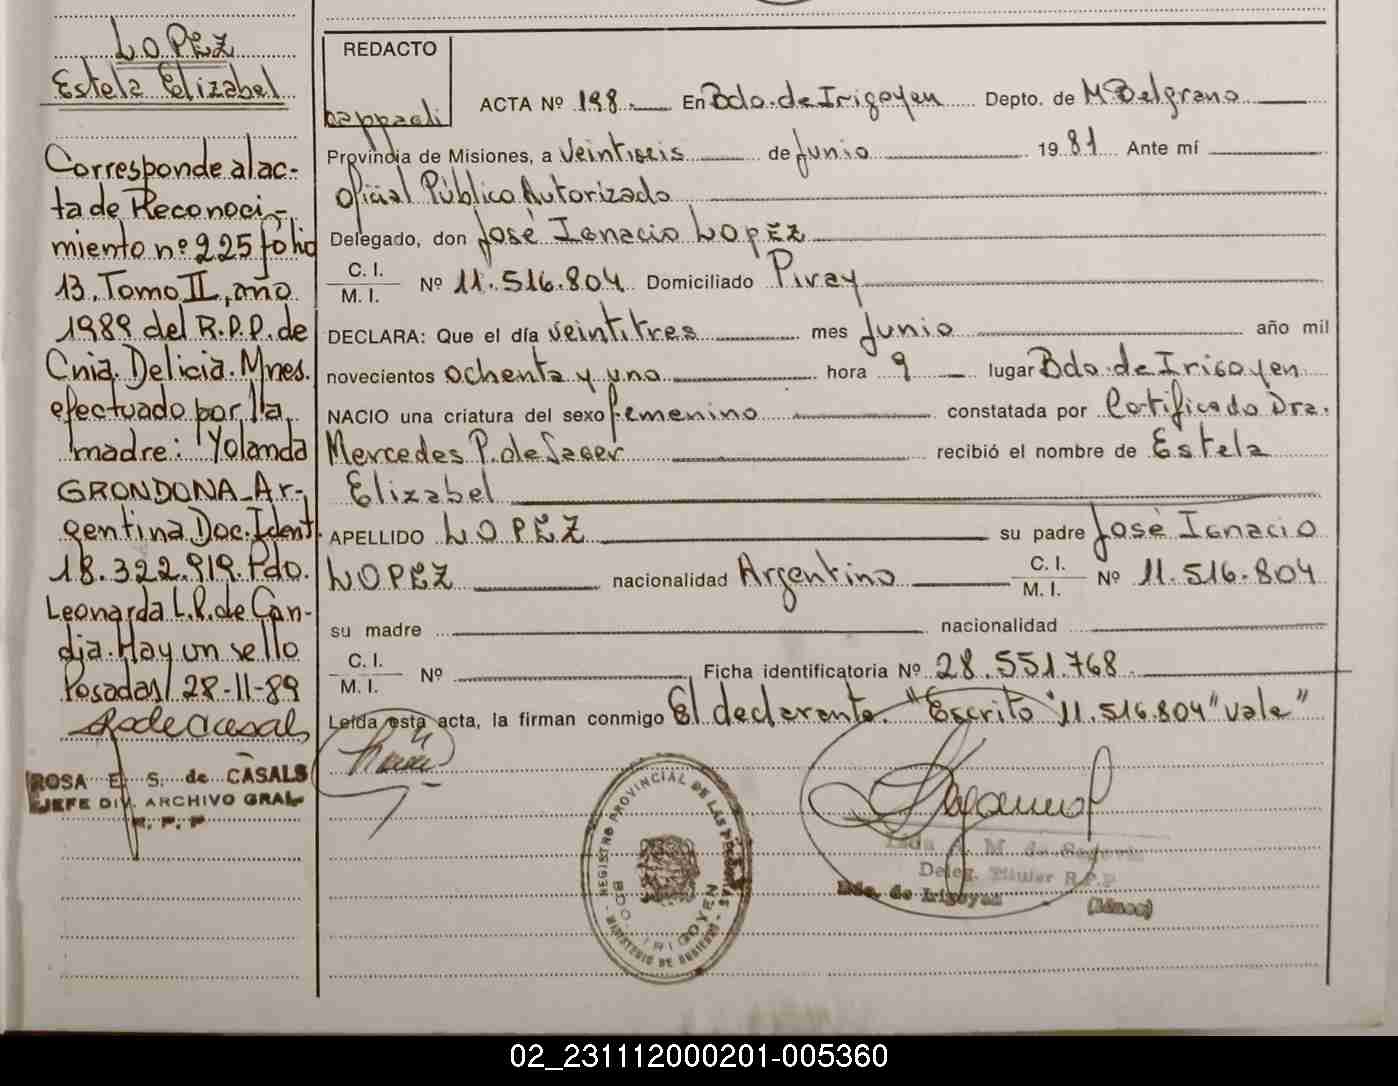 LOPEZ
Estela Elizabel
Corresponde al ac-
ta de Reconoci-
miento nº 225 fólio
13, Tomo II, año
1989 del R.P.P. de
Cnia. Delicia. Mnes.
efectuado por la
madre: Yolanda
GRONDONA_Ar-
gentina Doc. Ident.
18.322.919. Pdo.
Leonarda L.R. de Can-
dia. Hay un sello
Posadas, 28-11-89
ROSA E. S. de CASALS
JEFE DIV. ARCHIVO GRAL.
R. P. P
REDACTO
ACTA Nº 198. En Bdo. de Irigoyen Depto. de M Belgrano
Provincia de Misiones, a veintiseis de Junio 1981 Ante mí
Oficial Público Autorizado
Delegado, don José Ignacio LOPEZ
C. I.
M. I. Nº 11.516.804 Domiciliado Piray
DECLARA: Que el día veintitres mes Junio año mil
novecientos ochenta y uno hora 9 lugar Bdo. de Irigoyen
NACIO una criatura del sexo femenino constatada por Certificado Dra.
Mercedes P. de recibió el nombre de Estela
Elizabel
APELLIDO LOPEZ su padre José Ignacio
LOPEZ nacionalidad Argentino C. I.
M. I. Nº 11.516.804
su madre nacionalidad
C. I.
M. I. Nº Ficha identificatoria Nº 28.551.768
Leída esta acta, la firman conmigo El declarante. "Escrito 11.516.804" Vale"
REGISTRO PROVINCIAL DE LAS PERSONAS
MINISTERIO DE GOBIERNO
BDO. IRIGOYEN
A. M. de Segovia
Deleg. Titular R.P.P
Bdo. de Irigoyen (Mnes)
02_231112000201-005360